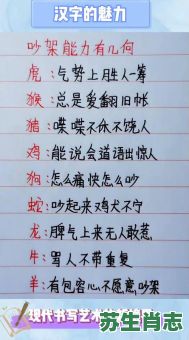 汉字的魅力
吵架能力有几何
虎:气势上胜人一筹
猴:总是爱翻旧帐
猪:喋喋不休不饶人
鸡:能说会道语出惊人
狗:怎么痛快怎么吵
蛇:吵起来鸡犬不宁
龙:脾气上来无人敢惹
牛:骂人不带重复
羊:有包容心不愿意吵架
现代书写艺术
苏生肖志